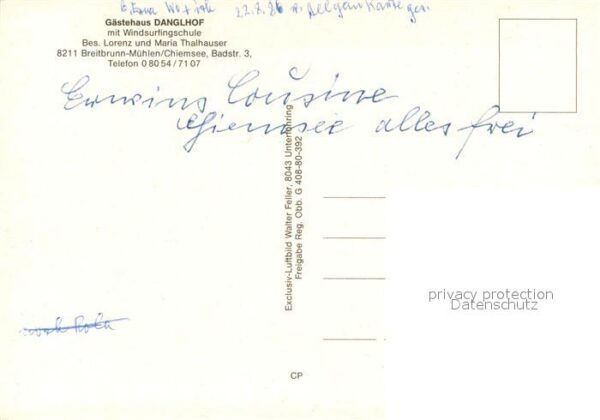 Gästehaus DANGLHOF
mit Windsurfingschule
Bes. Lorenz und Maria Thalhauser
8211 Breitbrunn-Mühlen/Chiemsee, Badstr. 3,
Telefon 0 80 54 / 71 07
Erwins Cousine
Chiemsee alles frei
Exclusiv-Luftbild Walter Feller, 8043 Unterföhring
Freigabe Reg. Obb. G 408-80-392
privacy protection
Datenschutz
CP